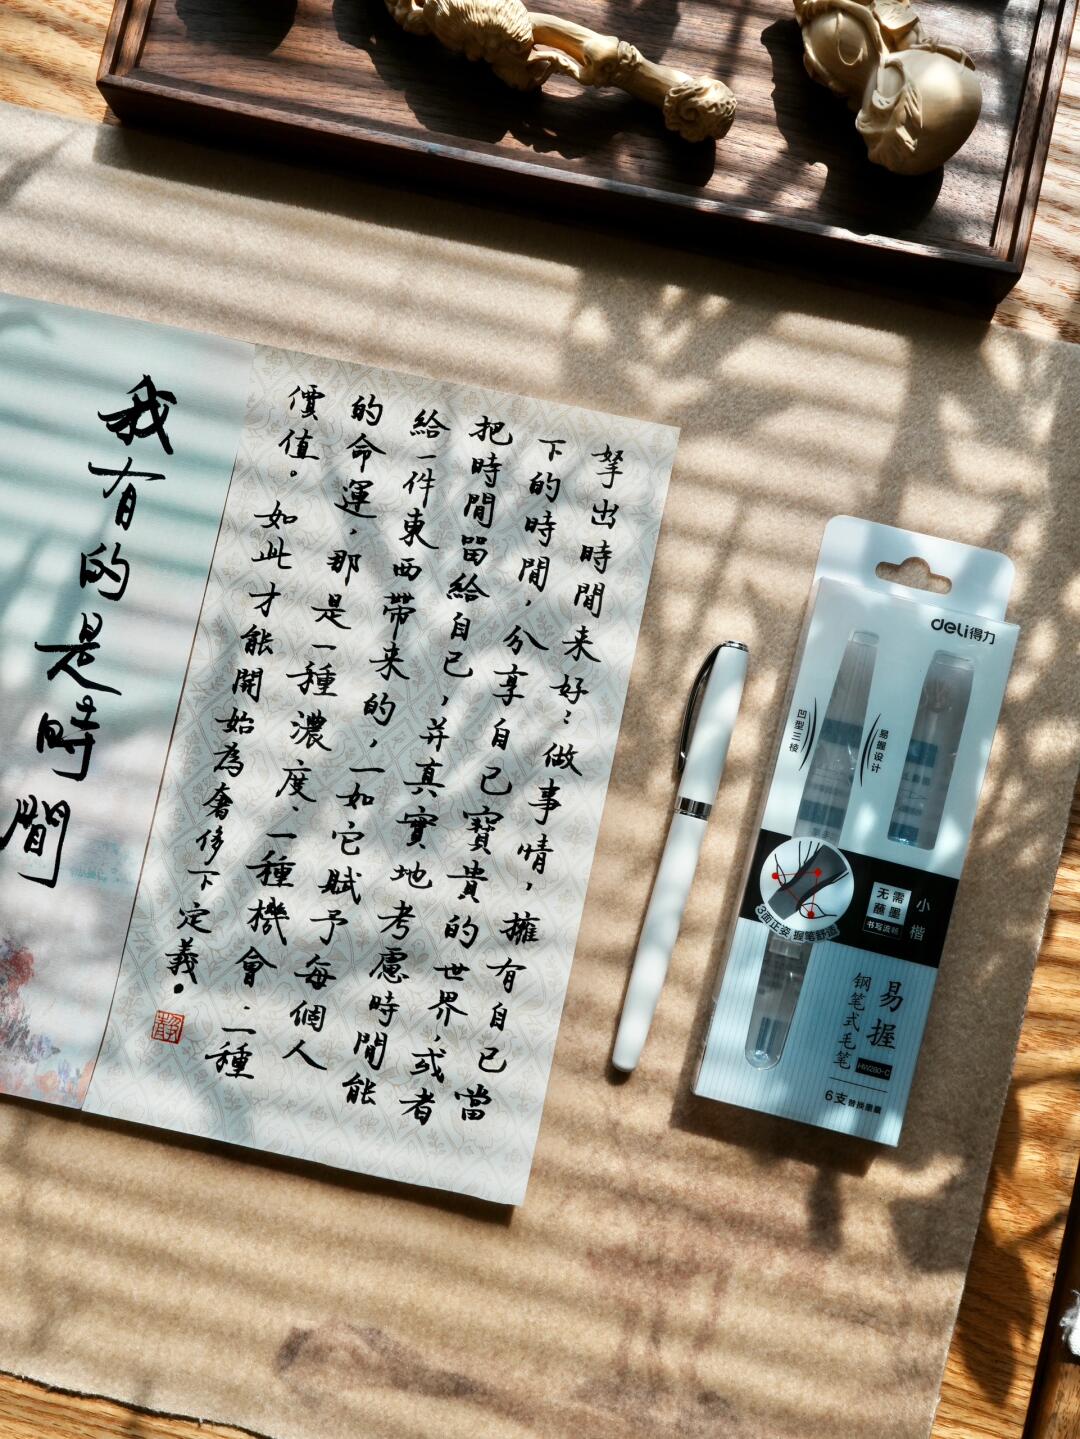 拏出時間来好:做事情,擁有自己當
下的時間,分享自己寶貴的世界,或者
把時間留給自己,并真實地考慮時間能
給一件東西帶来的,一如它賦予每個人
的命運,那是一種濃度、一種機會、一種
價值。如此才能開始為奢侈下定義。
我有的是時間
deli得力
凹型三棱
易握设计
3面正姿 握笔舒适
无需
蘸墨
书写流畅
小楷
易握
钢笔式毛笔
HW280-C
6支替换墨囊